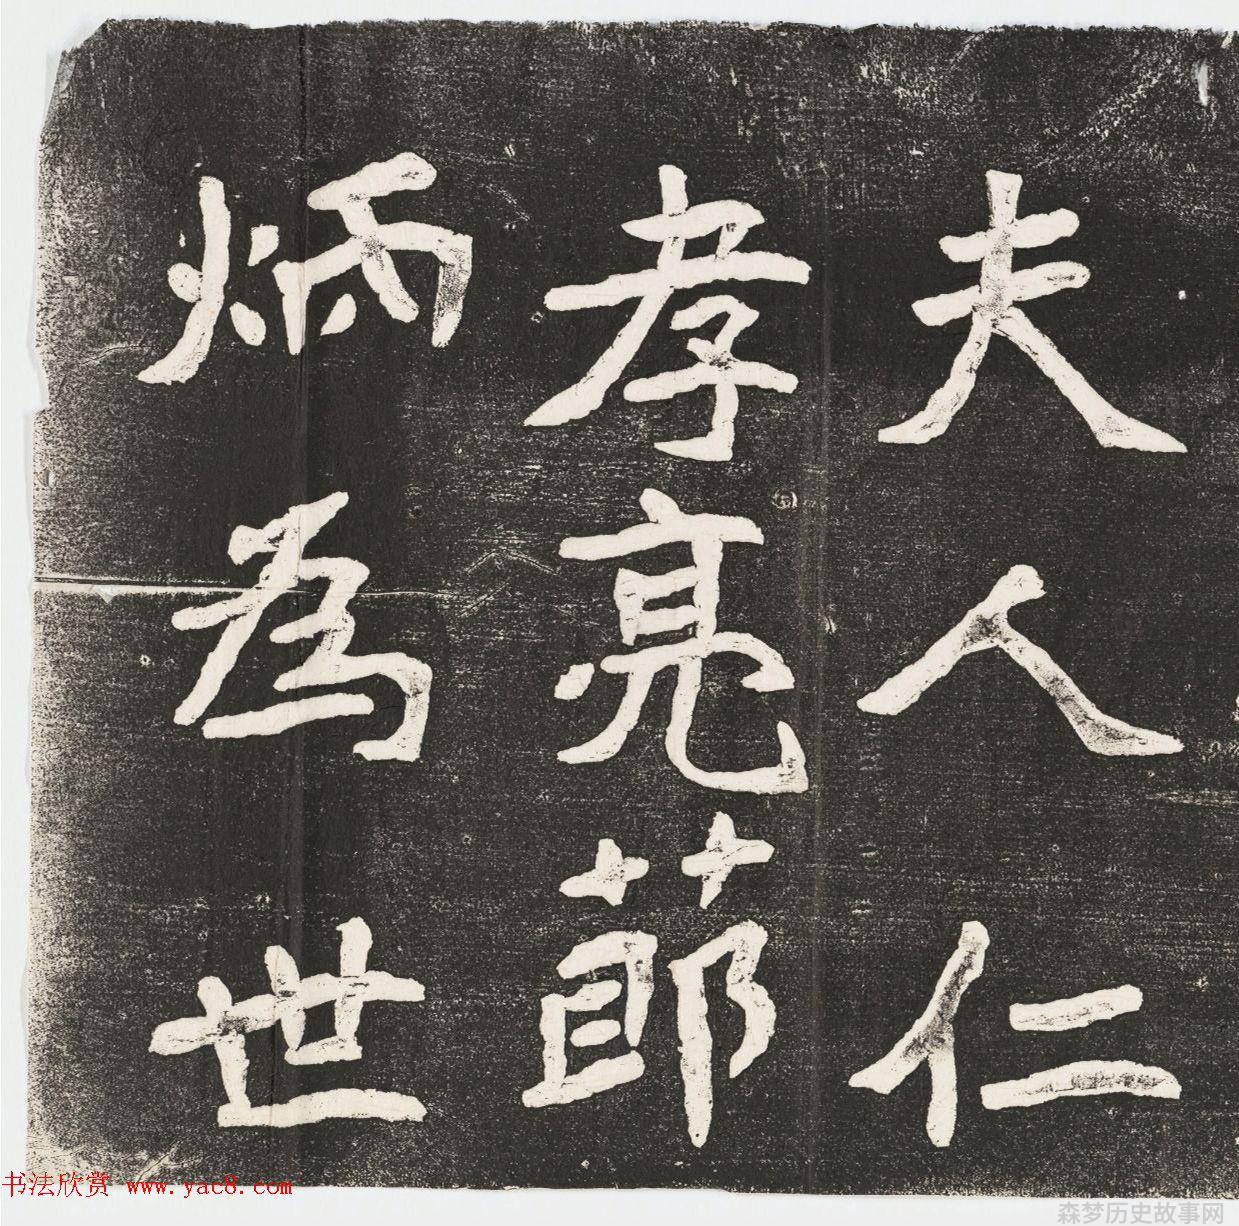 夫人仁
孝亮莭
炳為世
书法欣赏 www.yac8.com
森梦历史故事网